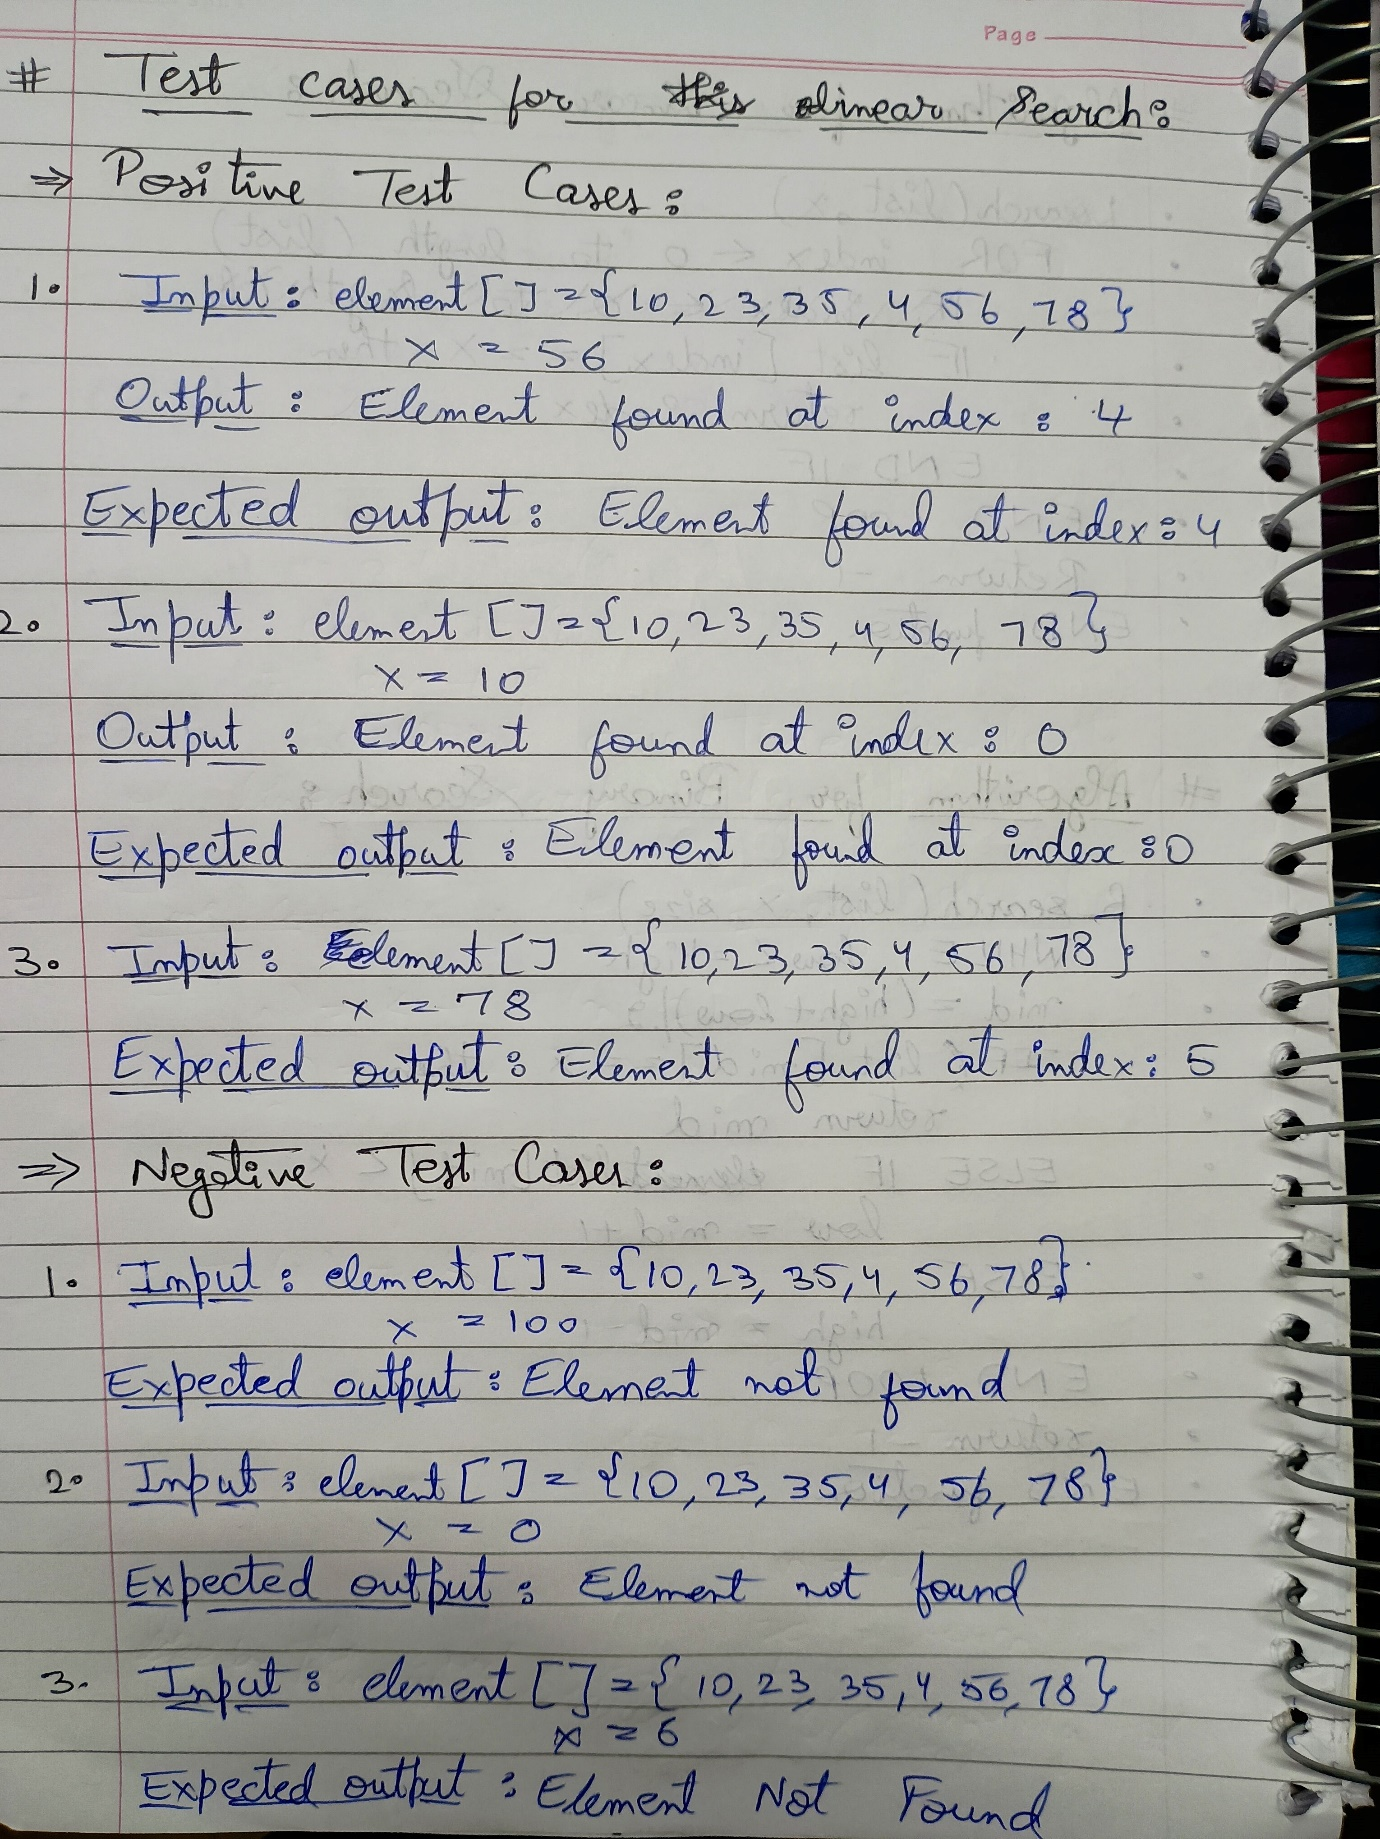 Page
# Test cases for this linear Search:
⇒ Positive Test Cases:
1. Input: element [] = {10, 23, 35, 4, 56, 78}
x = 56
Output: Element found at index: 4
Expected output: Element found at index: 4
2. Input: element [] = {10, 23, 35, 4, 56, 78}
x = 10
Output: Element found at index: 0
Expected output: Element found at index: 0
3. Input: element [] = {10, 23, 35, 4, 56, 78}
x = 78
Expected output: Element found at index: 5
⇒ Negative Test Cases:
1. Input: element [] = {10, 23, 35, 4, 56, 78}
x = 100
Expected output: Element not found
2. Input: element [] = {10, 23, 35, 4, 56, 78}
x = 0
Expected output: Element not found
3. Input: element [] = { 10, 23, 35, 4, 56, 78}
x = 6
Expected output: Element Not Found